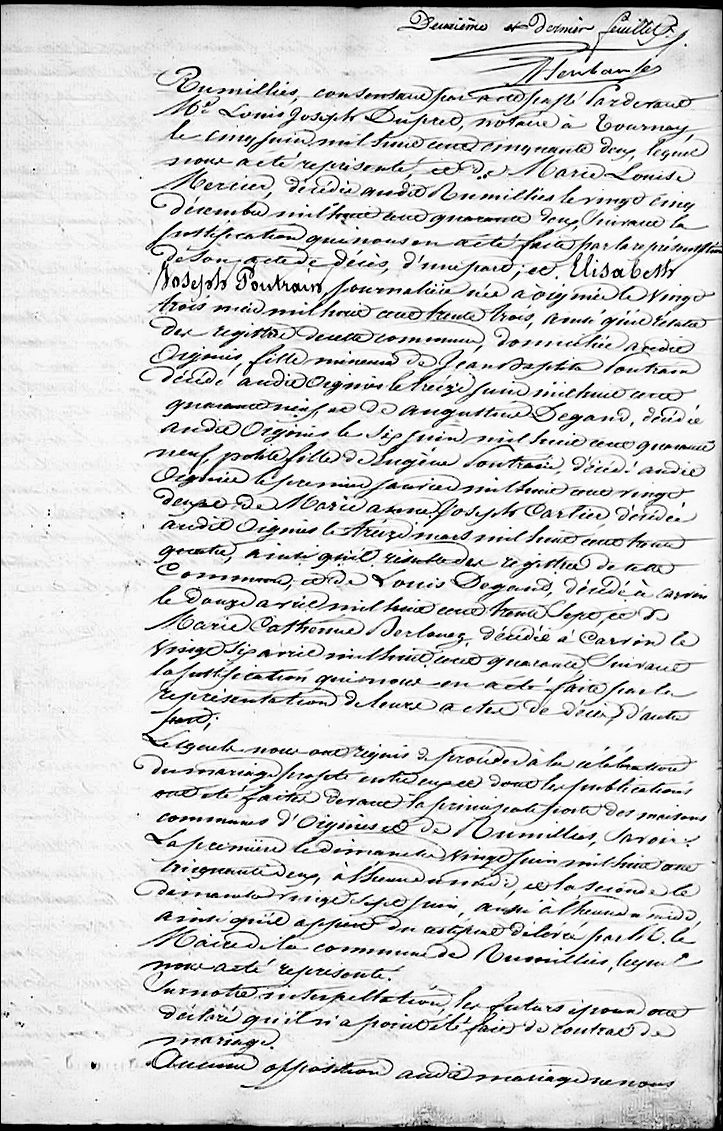 Deuxième et dernier feuillet
Rumillies, consentant par acte passé pardevant
Me Louis Joseph Dupret, notaire à Tournay,
le cinq juin mil huit cent cinquante deux, lequel
nous a été représenté, et de Marie Louise
Mercier, décédée audit Rumillies le vingt cinq
décembre mil huit cent quarante deux, suivant la
justification qui nous en a été faite par la représentation
de son acte de décès, d'une part; et Elisabeth
Joseph Poutrain, journalière née à Oignies le vingt
trois mai mil huit cent trente trois, ainsi qu'il résulte
des registres de cette commune, domiciliée audit
Oignies, fille mineure de Jean Baptiste Poutrain
décédé audit Oignies le treize juin mil huit cent
quarante neuf et de Augustine Degand, décédée
audit Oignies le six juin mil huit cent quarante
neuf, petite fille de Eugène Poutrain décédé audit
Oignies le premier janvier mil huit cent vingt
deux et de Marie Anne Joseph Cartier décédée
audit Oignies le treize mars mil huit cent trente
quatre, ainsi qu'il résulte des registres de cette
Commune, et de Louis Degand, décédé à Carvin
le douze avril mil huit cent trente sept et de
Marie Catherine décédée à Carvin le
vingt six avril mil huit cent quarante, suivant
la justification qui nous en a été faite par la
représentation de leurs actes de décès, d'autre
part;
Lesquels nous ont requis de procéder à la célébration
du mariage projeté entre eux et dont les publications
ont été faites devant la principale porte des maisons
communes d'Oignies et de Rumillies, savoir:
La première le dimanche vingt juin mil huit cent
cinquante deux, à l'heure de midi, et la seconde le
dimanche vingt sept juin, aussi à l'heure de midi,
ainsi qu'il appert du certificat délivré par M. le
Maire de la commune de Rumillies, lequel
nous a été représenté.
Sur notre interpellation, les futurs époux ont
déclaré qu'il n'a point été fait de contrat de
mariage.
Aucune opposition audit mariage ne nous